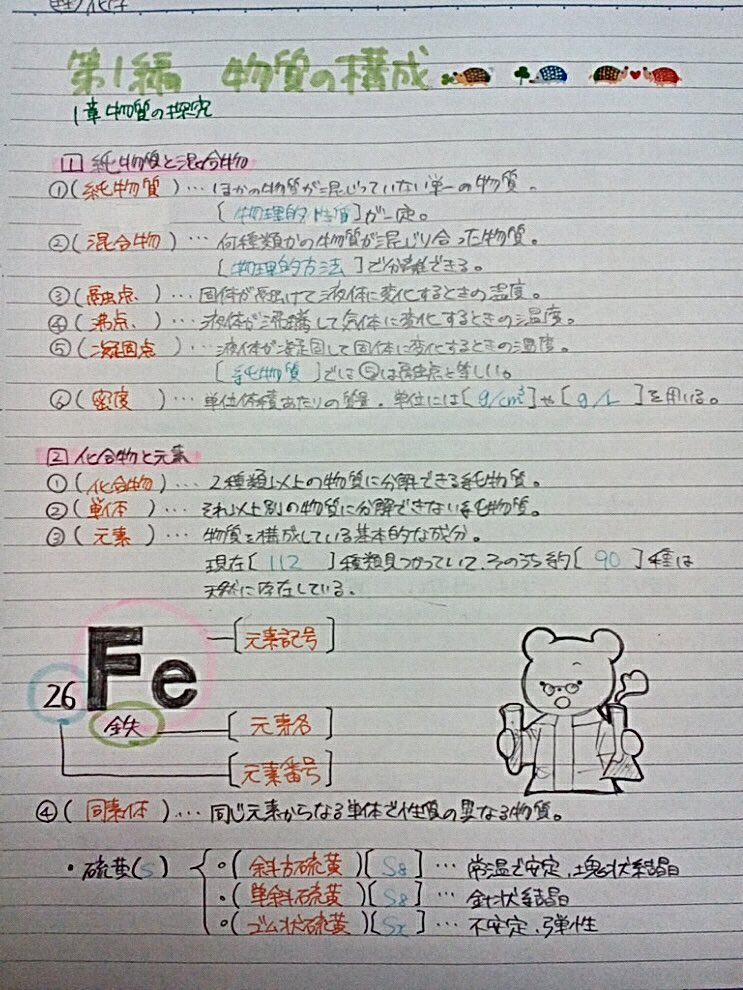 化学
第1編 物質の構成
1章 物質の探究
1 純物質と混合物
①(純物質)…ほかの物質が混じっていない単一の物質。
[物理的性質]が一定。
②(混合物)…何種類かの物質が混じり合った物質。
[物理的方法]で分離できる。
③(融点)…固体が融けて液体に変化するときの温度。
④(沸点)…液体が沸騰して気体に変化するときの温度。
⑤(凝固点)…液体が凝固して固体に変化するときの温度。
[純物質]では⑤は融点と等しい。
⑥(密度)…単位体積あたりの質量。単位には[g/cm³]や[g/L]を用いる。
2 化合物と元素
①(化合物)…2種類以上の物質に分解できる純物質。
②(単体)…それ以上別の物質に分解できない純物質。
③(元素)…物質を構成している基本的な成分。
現在[112]種類見つかっていて、そのうち約[90]種は
天然に存在している。
Fe [元素記号]
26
鉄 [元素名]
[元素番号]
④(同素体)…同じ元素からなる単体で性質の異なる物質。
・硫黄(S) ・(斜方硫黄)[S₈]…常温で安定、塊状結晶
・(単斜硫黄)[S₈]…針状結晶
・(ゴム状硫黄)[Sx]…不安定、弾性